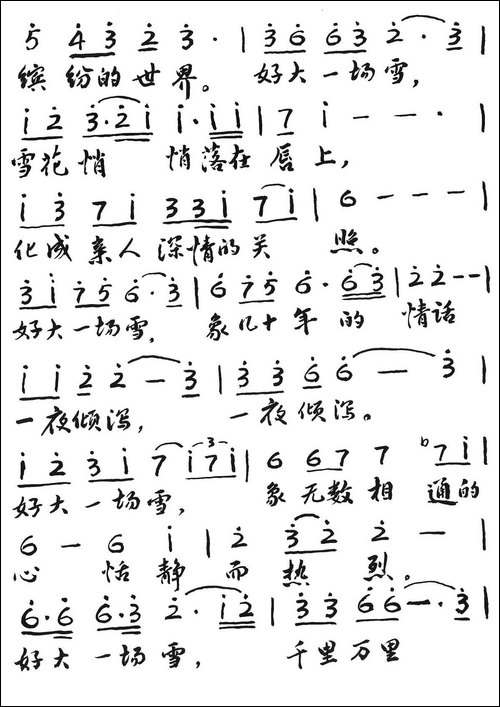 5 4̇ 3̇ 2̇ 3̇ · | 3̇ 6̇ 6̇ 3̇ 2̇ · 3̇ |
缤 纷的 世 界。 好大 一场 雪,
i̇ 2̇ 3̇·2̇ i̇ i̇·i̇ i̇ | 7 i̇ — — · |
雪花 悄 悄落在 唇 上,
i̇ 3̇ 7 i̇ 3 3 i̇ 7 i̇ | 6 — — — |
化成 亲人 深情的 关 照。
3̇ i̇ 7̇ 5̇ 6̇ · 3̇ | 6̇ 7̇ 5̇ 6̇ · 6̇ 3̇ | 2̇ 2̇ — — |
好大 一场 雪, 象 几十 年 的 情话
i̇ i̇ 2̇ 2̇ — 3̇ | 3̇ 3̇ 6̇ 6̇ — 3̇ |
一夜倾泻, 一夜倾泻。
i̇ 2̇ 3̇ i̇ 7 i̇ 7 i̇ 3 | 6 6 7 7 7 b7 i̇ |
好大 一场 雪, 象 无数 相 通的
6 — 6 i̇ | 2̇ 3̇ 2̇ 2̇ — |
心 恬 静 而 热 烈。
6̇·6̇ 6̇·3̇ 2̇ · i̇ 2̇ | 3̇ 3̇ 6̇ 6̇ — · 3̇ |
好大 一场 雪, 千里 万里